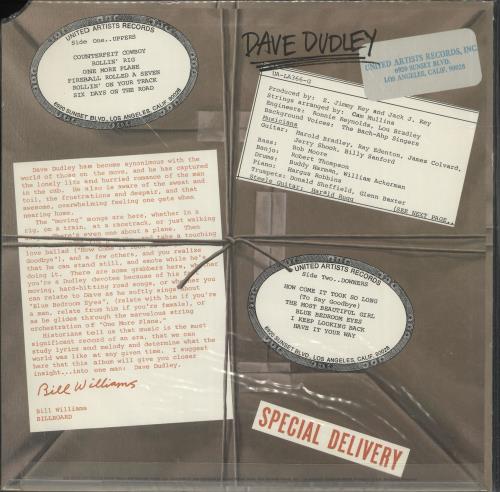 UNITED ARTISTS RECORDS
Side One..UPPERS
COUNTERFEIT COWBOY
ROLLIN' RIG
ONE MORE PLANE
FIREBALL ROLLED A SEVEN
ROLLIN' ON YOUR TRACK
SIX DAYS ON THE ROAD
6920 SUNSET BLVD., LOS ANGELES, CALIF. 90028
DAVE DUDLEY
UNITED ARTISTS RECORDS, INC.
6920 SUNSET BLVD.
LOS ANGELES, CALIF. 90028
UA-LA366-G
Produced by: Z. Jimmy Key and Jack J. Key
Strings arranged by: Cam Mullins
Engineers: Ronnie Reynolds, Lou Bradley
Background Voices: The Bach-Abp Singers
Musicians
Guitar: Harold Bradley, Ray Edenton, James Colvard,
Jerry Shook, Billy Sanford
Bass: Bob Moore
Banjo: Robert Thompson
Drums: Buddy Harman, William Ackerman
Piano: Hargus Robbins
Trumpets: Donald Sheffield, Glenn Baxter
Steele Guitar: Harold Rugg
(SEE NEXT PAGE..
Dave Dudley has become synonimous with the
world of those on the move, and he has captured
the lonely life and hurried romance of the man
in the cab. He is also aware of the sweat and
toil, the frustrations and despair, and that
awesome, overwhelming feeling one gets when
nearing home.
The "moving" songs are here, whether in a
rig, on a train, at a racetrack, or just walking
There's even one about a plane. Then
take a touching
love ballad ("How Come It Took So Long
Goodbye"), and a few others, and you realize
that he can stand still, and emote while he's
doing it. There are some grabbers here, whether
you're a Dudley devotee because of his
moving, hard-hitting road songs, or whether you
can relate to Dave as he softly sings about
"Blue Bedroom Eyes", (relate with him if you're
a man, relate from him if you're female), or
as he glides through the marvelous string
orchestration of "One More Plane."
Historians tell us that music is the most
significant record of an era, that we can
study lyrics and melody and determine what the
world was like at any given time. I suggest
here that this album will give you closer
insight...into one man: Dave Dudley.
Bill Williams
Bill Williams
BILLBOARD
UNITED ARTISTS RECORDS
Side Two..DOWNERS
HOW COME IT TOOK SO LONG
(To Say Goodbye)
THE MOST BEAUTIFUL GIRL
BLUE BEDROOM EYES
I KEEP LOOKING BACK
HAVE IT YOUR WAY
6920 SUNSET BLVD., LOS ANGELES, CALIF. 90028
SPECIAL DELIVERY